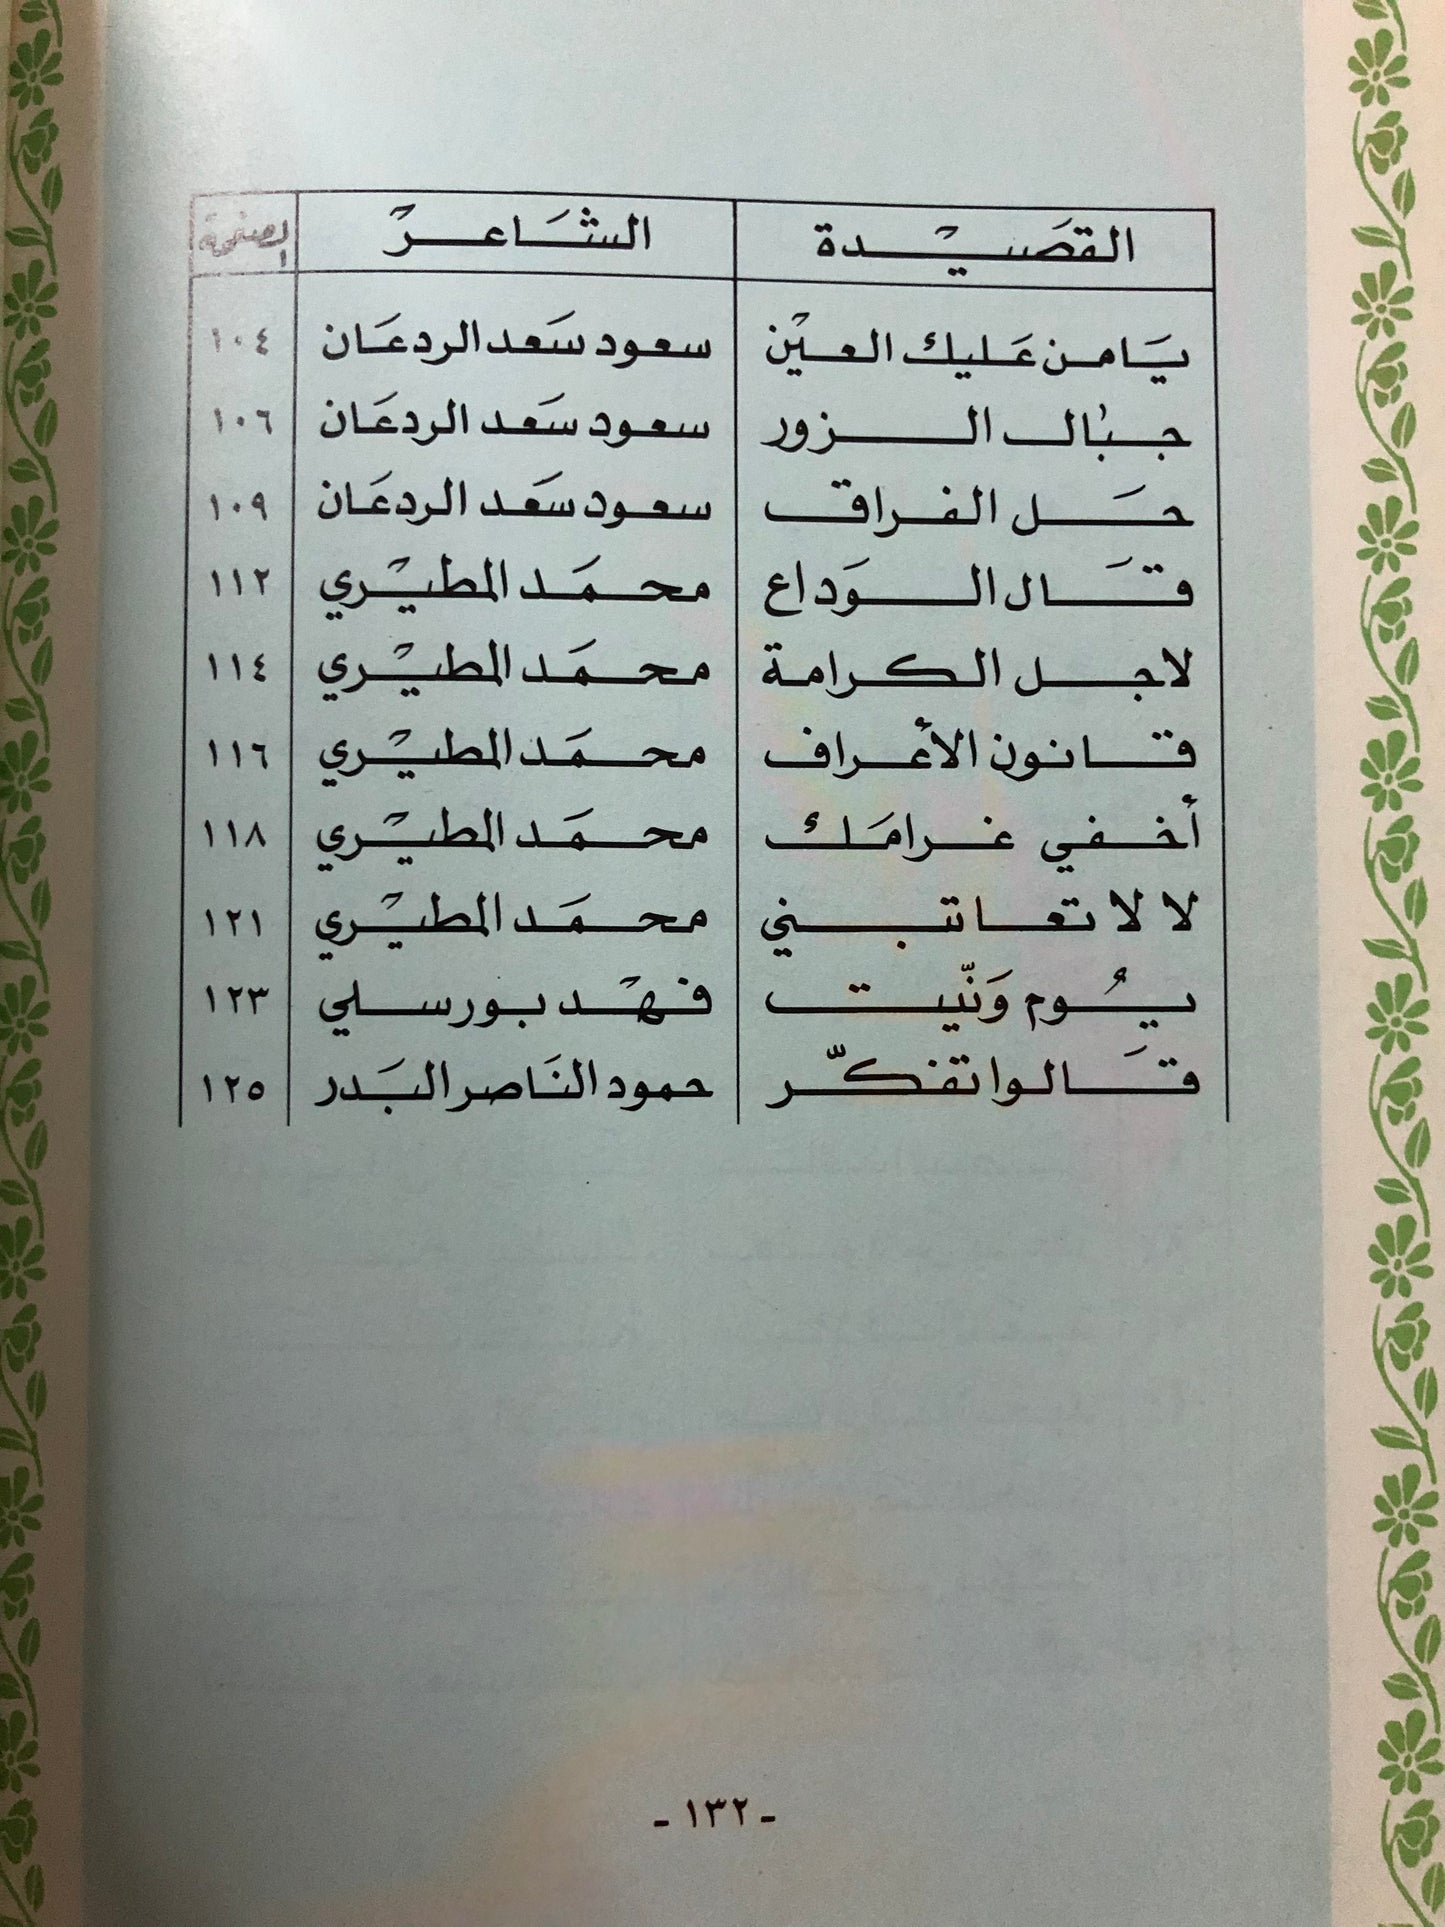 القصيدة الشاعر الصفحة
يامن عليك العين سعود سعد الردعان ١٠٤
جبال الزور سعود سعد الردعان ١٠٦
حل الفراق سعود سعد الردعان ١٠٩
قال الوداع محمد المطيري ١١٢
لاجل الكرامة محمد المطيري ١١٤
قانون الأعراف محمد المطيري ١١٦
أخفي غرامك محمد المطيري ١١٨
لا لا تعاتبني محمد المطيري ١٢١
يُوم وَنّيت فهد بورسلي ١٢٣
قالوا تفكّر حمود الناصر البدر ١٢٥
- ١٣٢ -